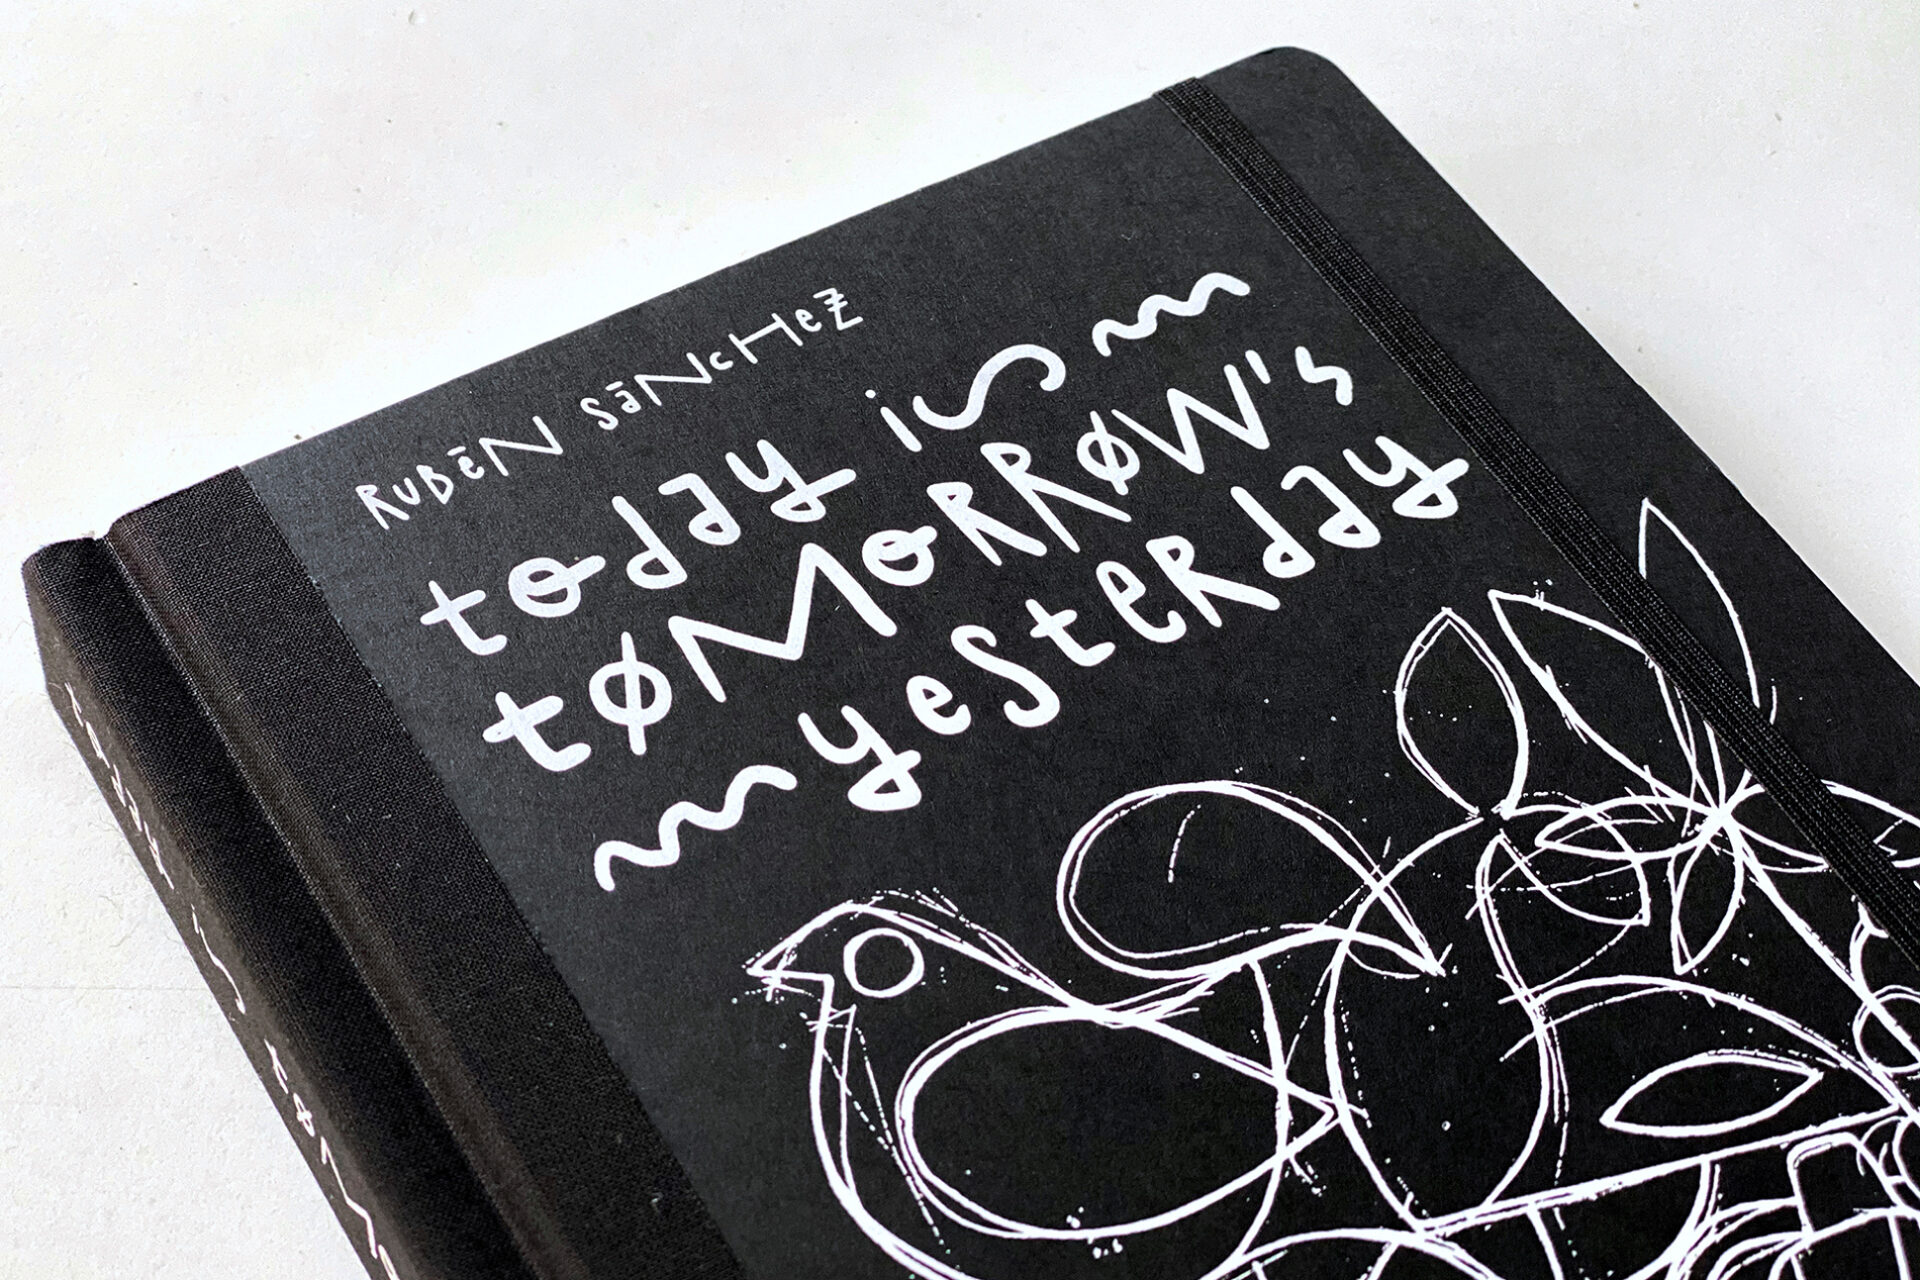 RUBēN SāNcHeZ
today is
tøMoRRøW's
yesteRday
today is tøMo